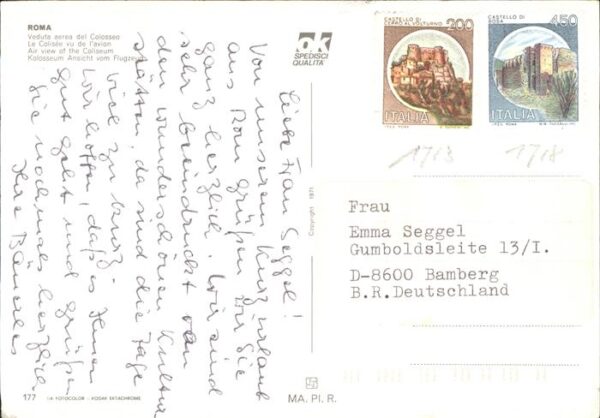 ROMA
Veduta aerea del Colosseo
Le Colisée vu de l'avion
Air view of the Coliseum
Kolosseum Ansicht vom Flugzeug
OK
SPEDISCI
QUALITA'
CASTELLO DI
CERRO AL VOLTURNO
200
ITALIA
CASTELLO DI
BOSA
450
ITALIA
1713
1718
Liebe Frau Seggel!
Von unserem Kurzurlaub
aus Rom grüßen wir Sie
ganz herzlich. Wir sind
sehr beeindruckt von
den wunderschönen Kultur
stätten, da sind die Tage
viel zu kurz.
Wir hoffen, daß es Ihnen
gut geht und grüßen
Sie nochmals herzlich
Ihre
Copyright 1971
Frau
Emma Seggel
Gumboldsleite 13/I.
D-8600 Bamberg
B.R.Deutschland
177
FOTOCOLOR - KODAK EKTACHROME
MA. PI. R.